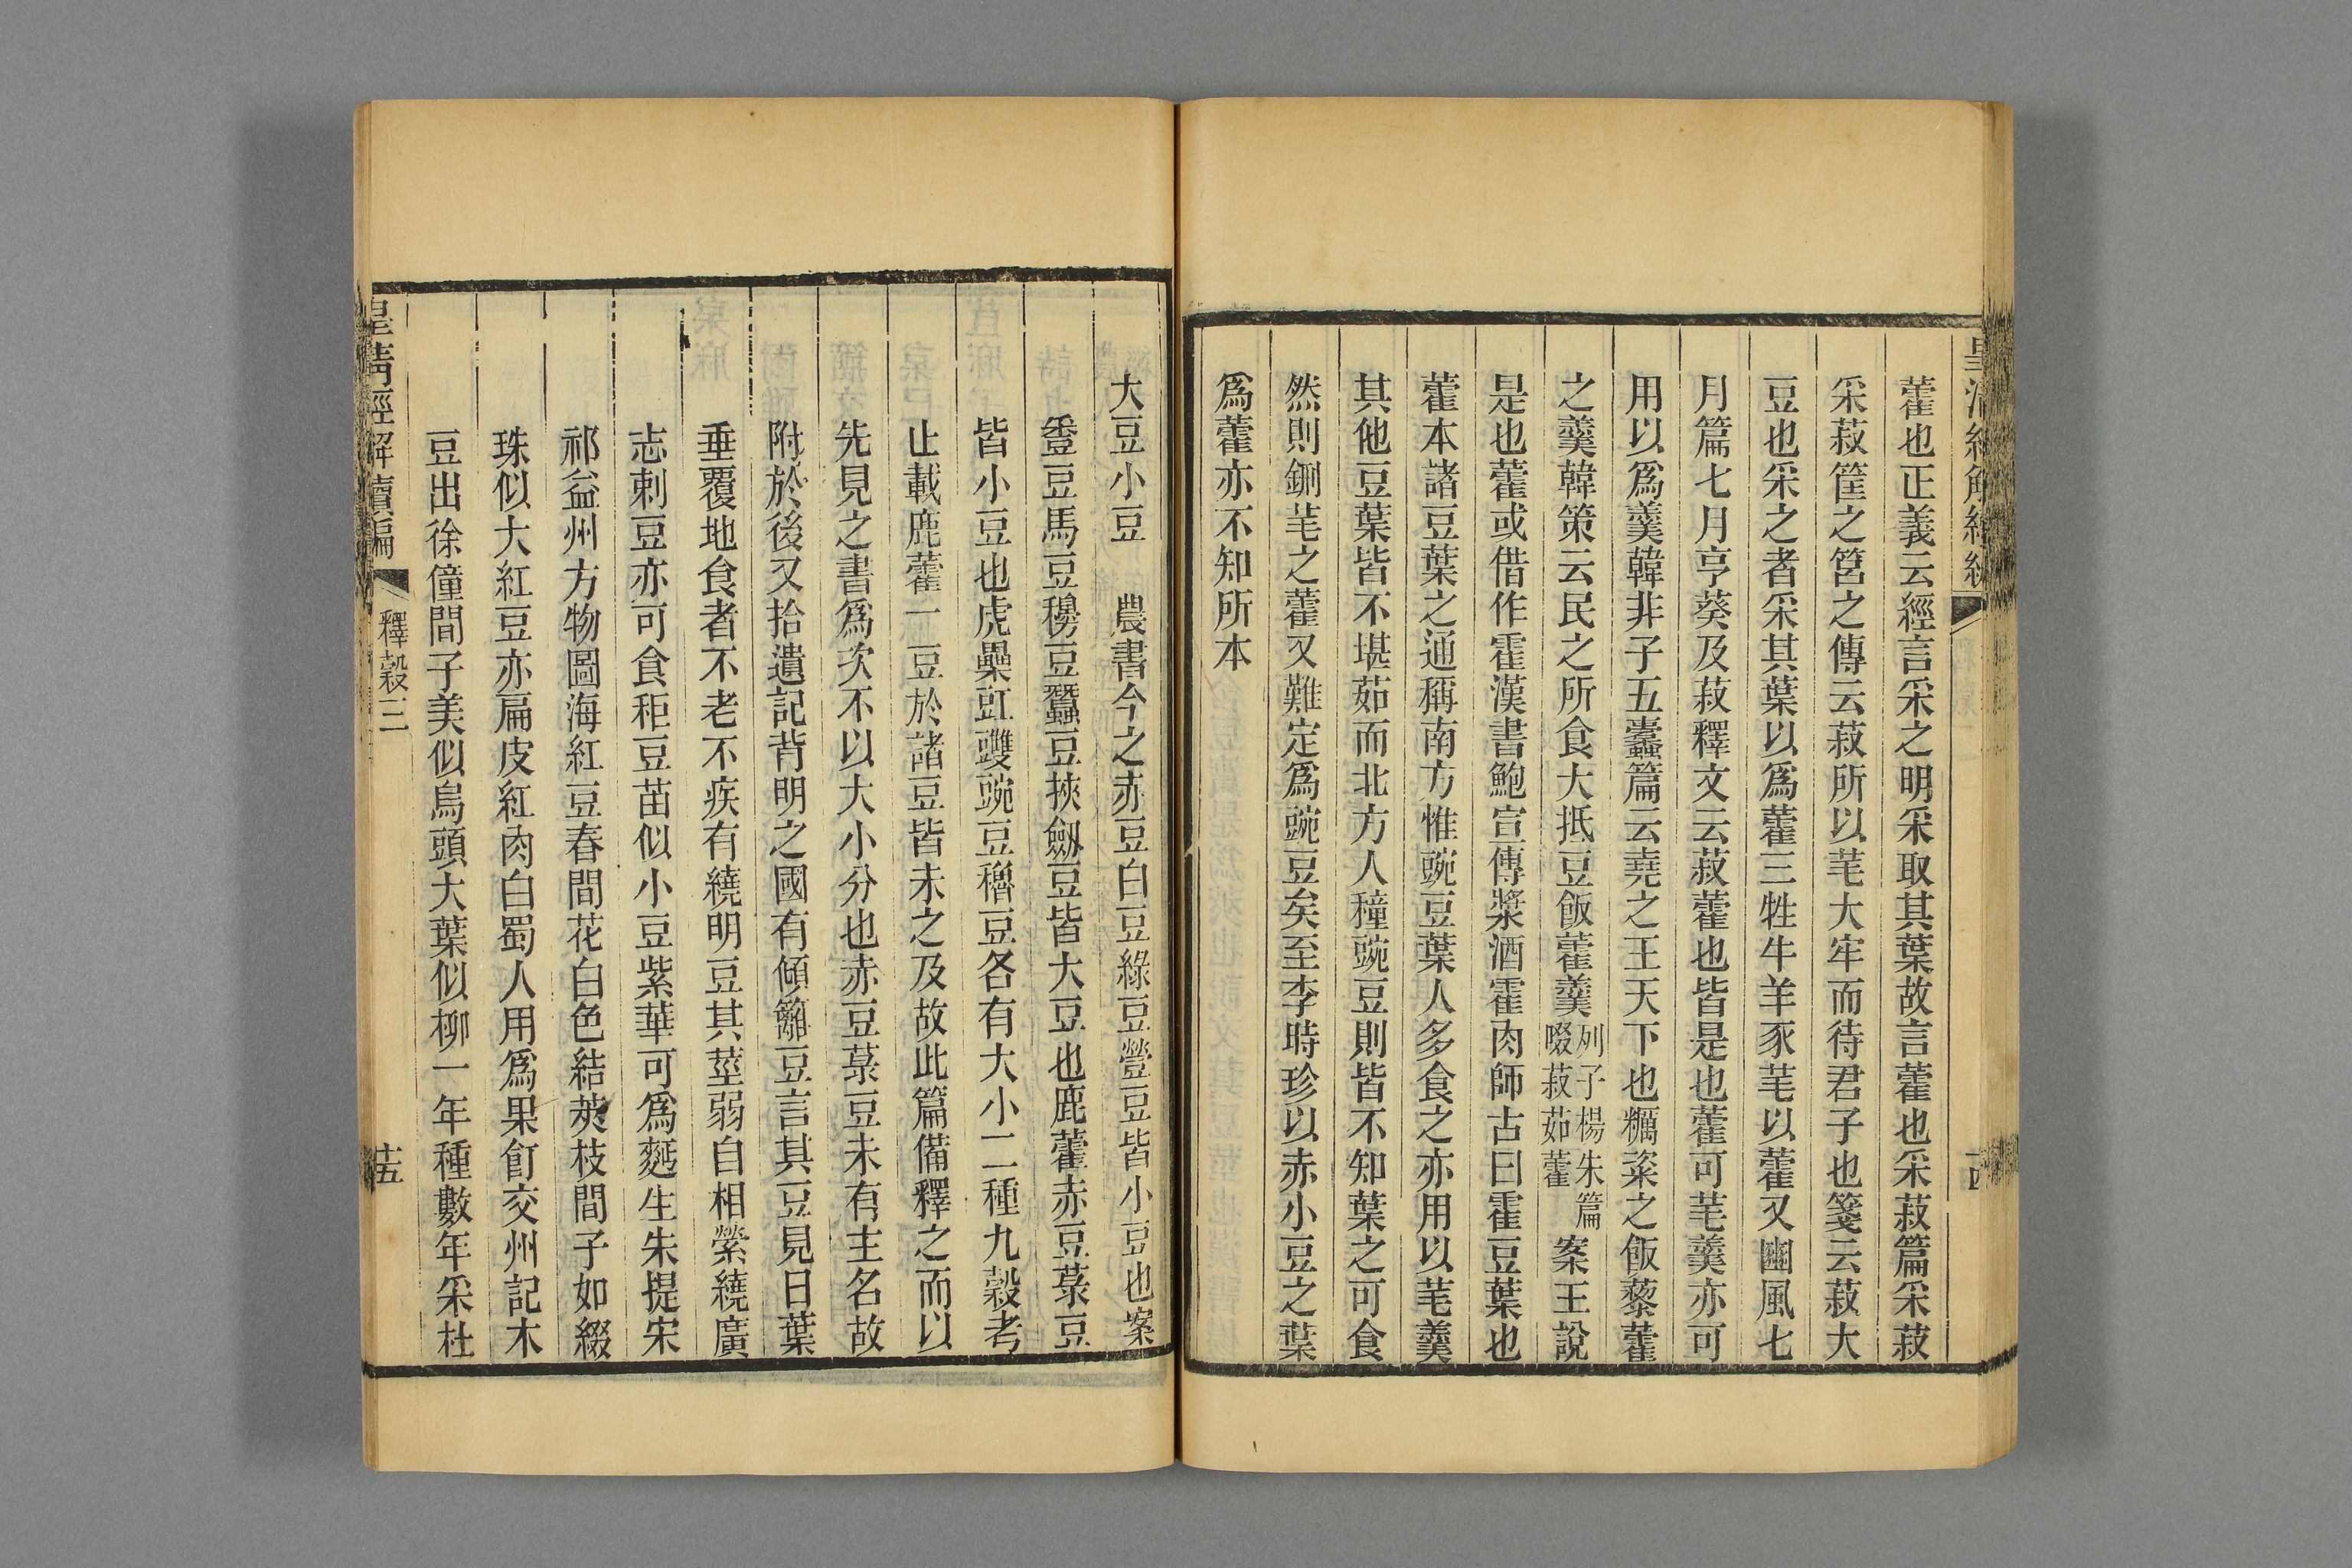 藿也正義云經言采之明采取其葉故言藿也采菽篇采菽
采菽筐之筥之傳云菽所以芼大牢而待君子也箋云菽大
豆也采之者采其葉以爲藿三牲牛羊豕芼以藿又豳風七
月篇七月亨葵及菽釋文云菽藿也皆是也藿可芼羹亦可
用以爲羹韓非子五蠹篇云堯之王天下也糲粢之飯藜藿
之羹韓策云民之所食大抵豆飯藿羹列子楊朱篇啜菽茹藿案王說
是也藿或借作霍漢書鮑宣傳漿酒霍肉師古曰霍豆葉也
藿本諸豆葉之通稱南方惟豌豆葉人多食之亦用以芼羹
其他豆葉皆不堪茹而北方人種豌豆則皆不知葉之可食
然則鉶芼之藿又難定爲豌豆矣至李時珍以赤小豆之葉
爲藿亦不知所本
大豆小豆　農書今之赤豆白豆綠豆䝁豆皆小豆也案
登豆馬豆穭豆蠶豆挾劒豆皆大豆也鹿藿赤豆菉豆
皆小豆也虎櫐豇䜶豌豆穭豆各有大小二種九穀考
止載鹿藿一豆於諸豆皆未之及故此篇備釋之而以
先見之書爲次不以大小分也赤豆菉豆未有主名故
附於後又拾遺記背明之國有傾籬豆言其豆見日葉
垂覆地食者不老不疾有繞明豆其莖弱自相縈繞廣
志刺豆亦可食秬豆苗似小豆紫華可爲麪生朱提宋
祁益州方物圖海紅豆春間花白色結莢枝間子如綴
珠似大紅豆亦扁皮紅肉白蜀人用爲果飣交州記木
豆出徐僮間子美似烏頭大葉似柳一年種數年采杜
皇清經解續編
釋穀三
十五